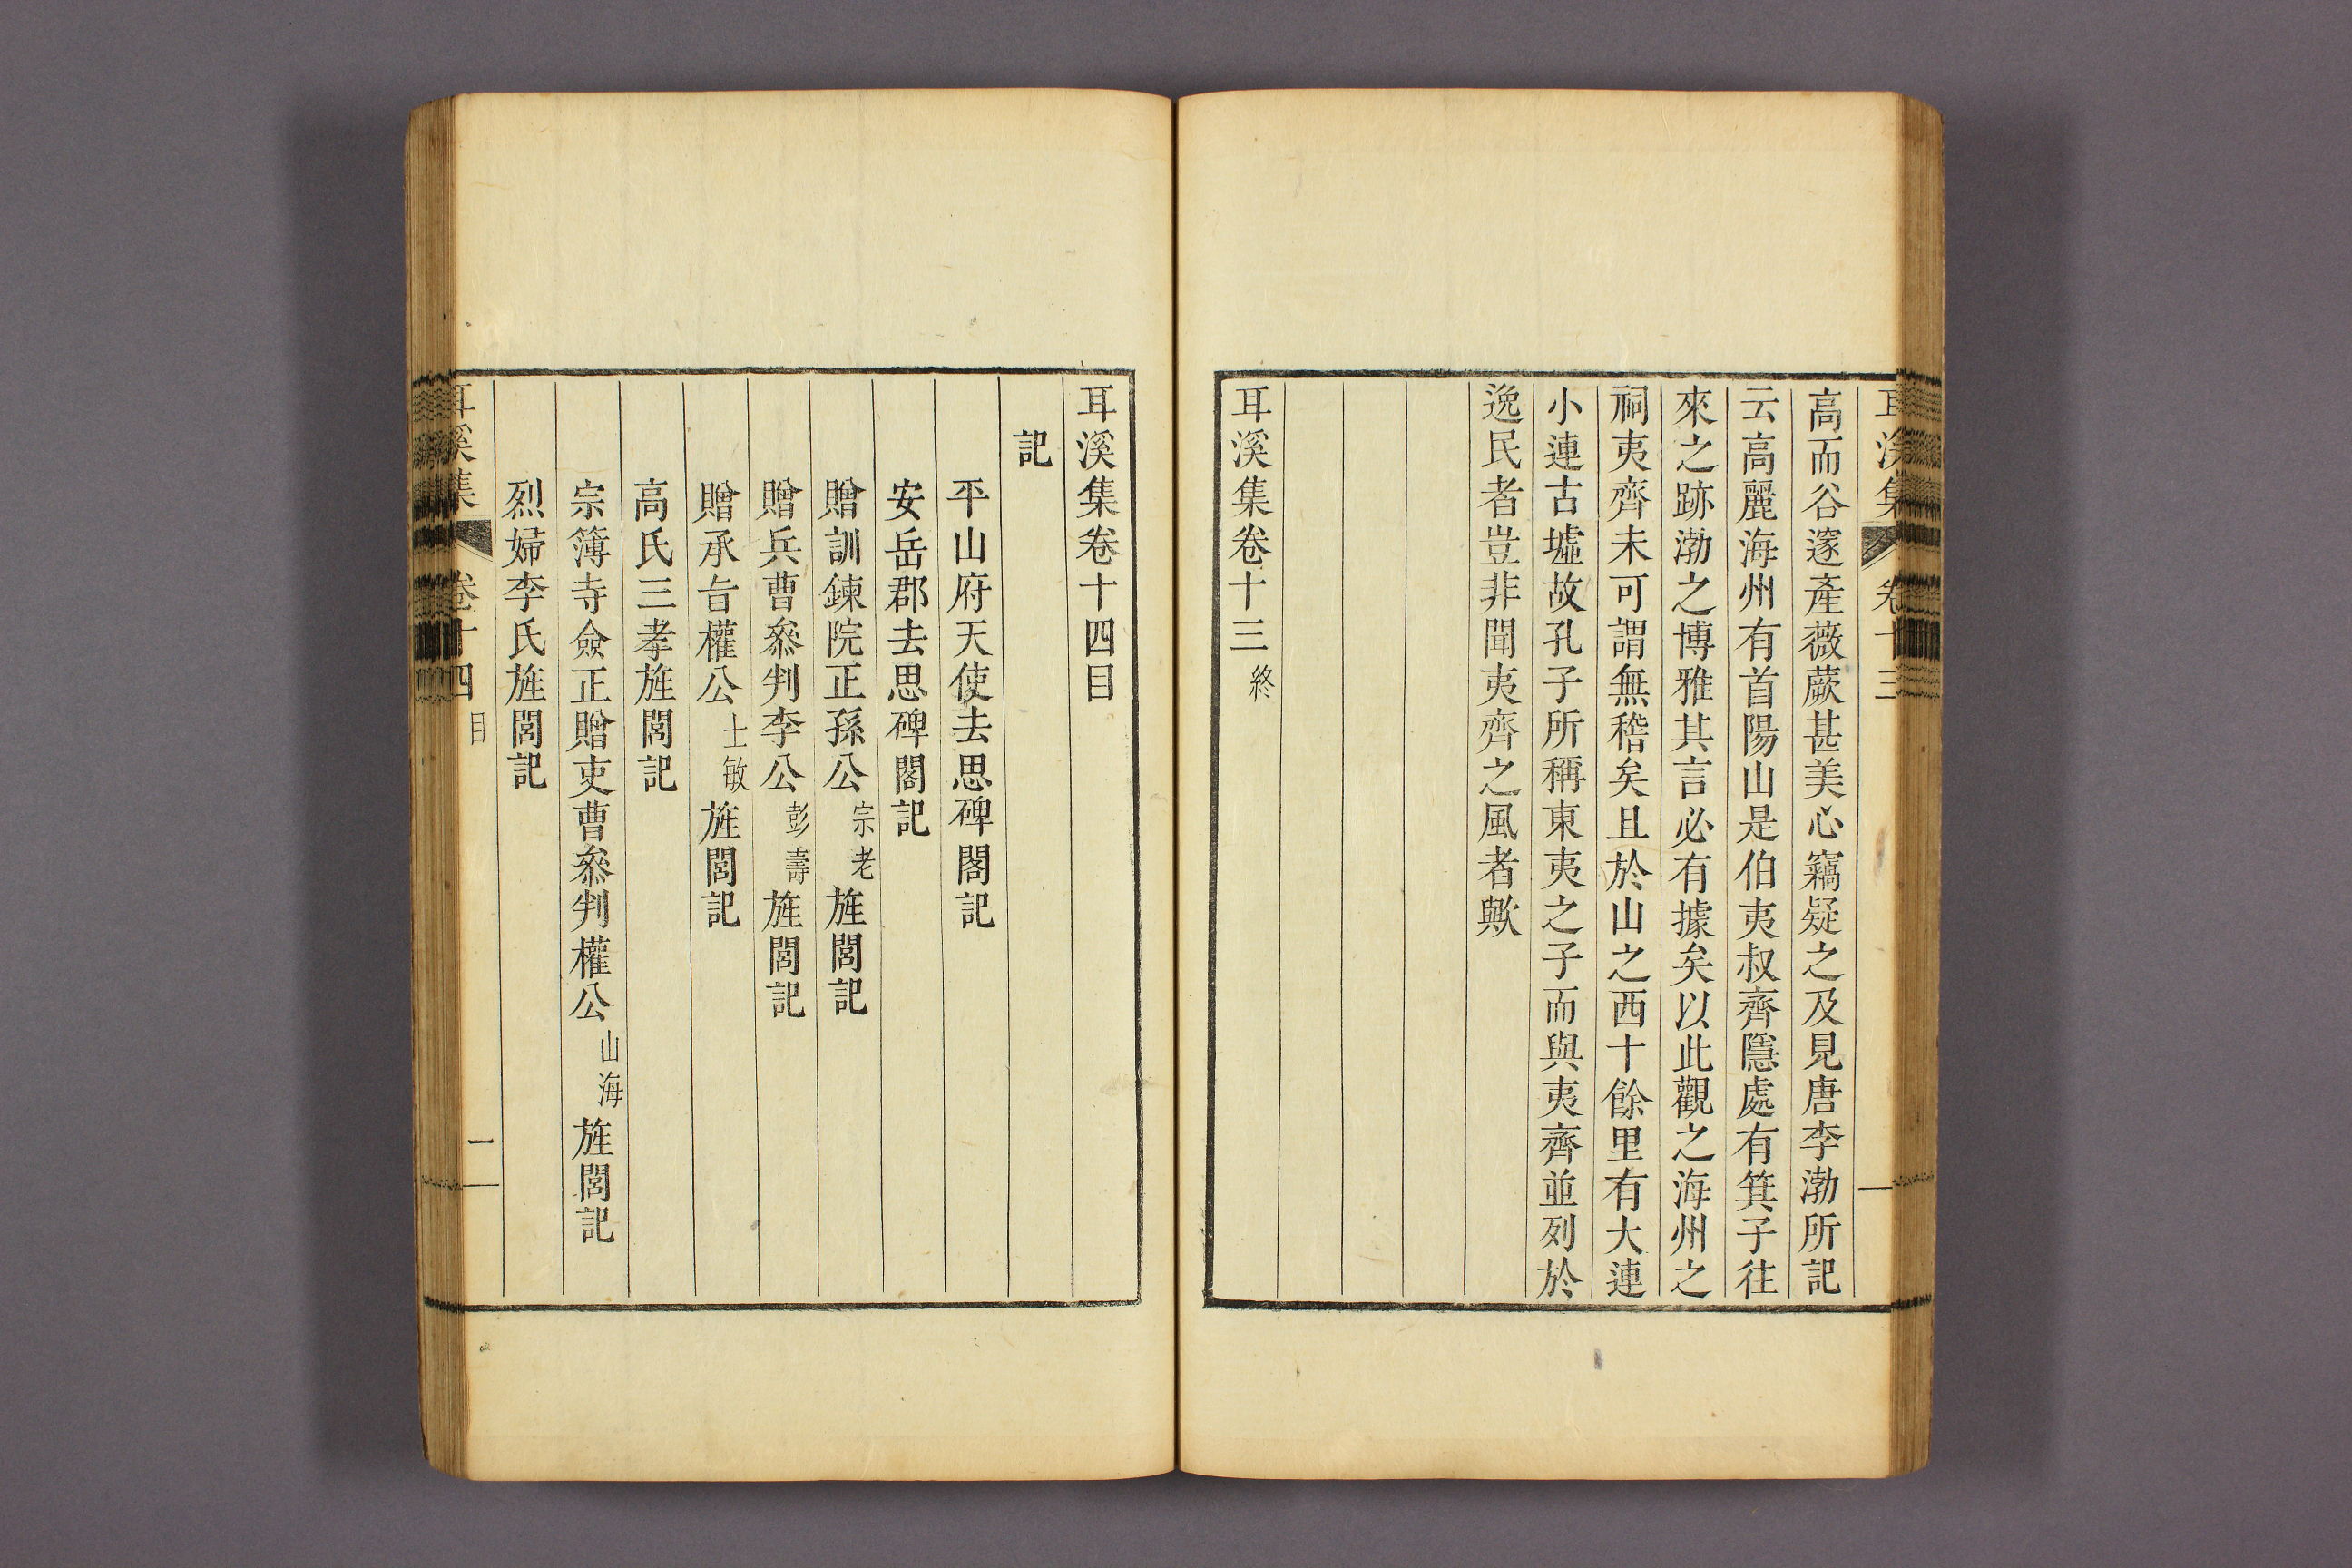 耳溪集 卷十三
高而谷邃產薇蕨甚美心竊疑之及見唐李渤所記
云高麗海州有首陽山是伯夷叔齊隱處有箕子往
來之跡渤之博雅其言必有據矣以此觀之海州之
祠夷齊未可謂無稽矣且於山之西十餘里有大連
小連古墟故孔子所稱東夷之子而與夷齊並列於
逸民者豈非聞夷齊之風者歟
耳溪集卷十三 終
耳溪集卷十四目
記
平山府天使去思碑閣記
安岳郡去思碑閣記
贈訓鍊院正孫公宗老旌閭記
贈兵曹叅判李公彭壽旌閭記
贈承旨權公士敏旌閭記
高氏三孝旌閭記
宗簿寺僉正贈吏曹叅判權公山海旌閭記
烈婦李氏旌閭記
耳溪集 卷十四 目 一